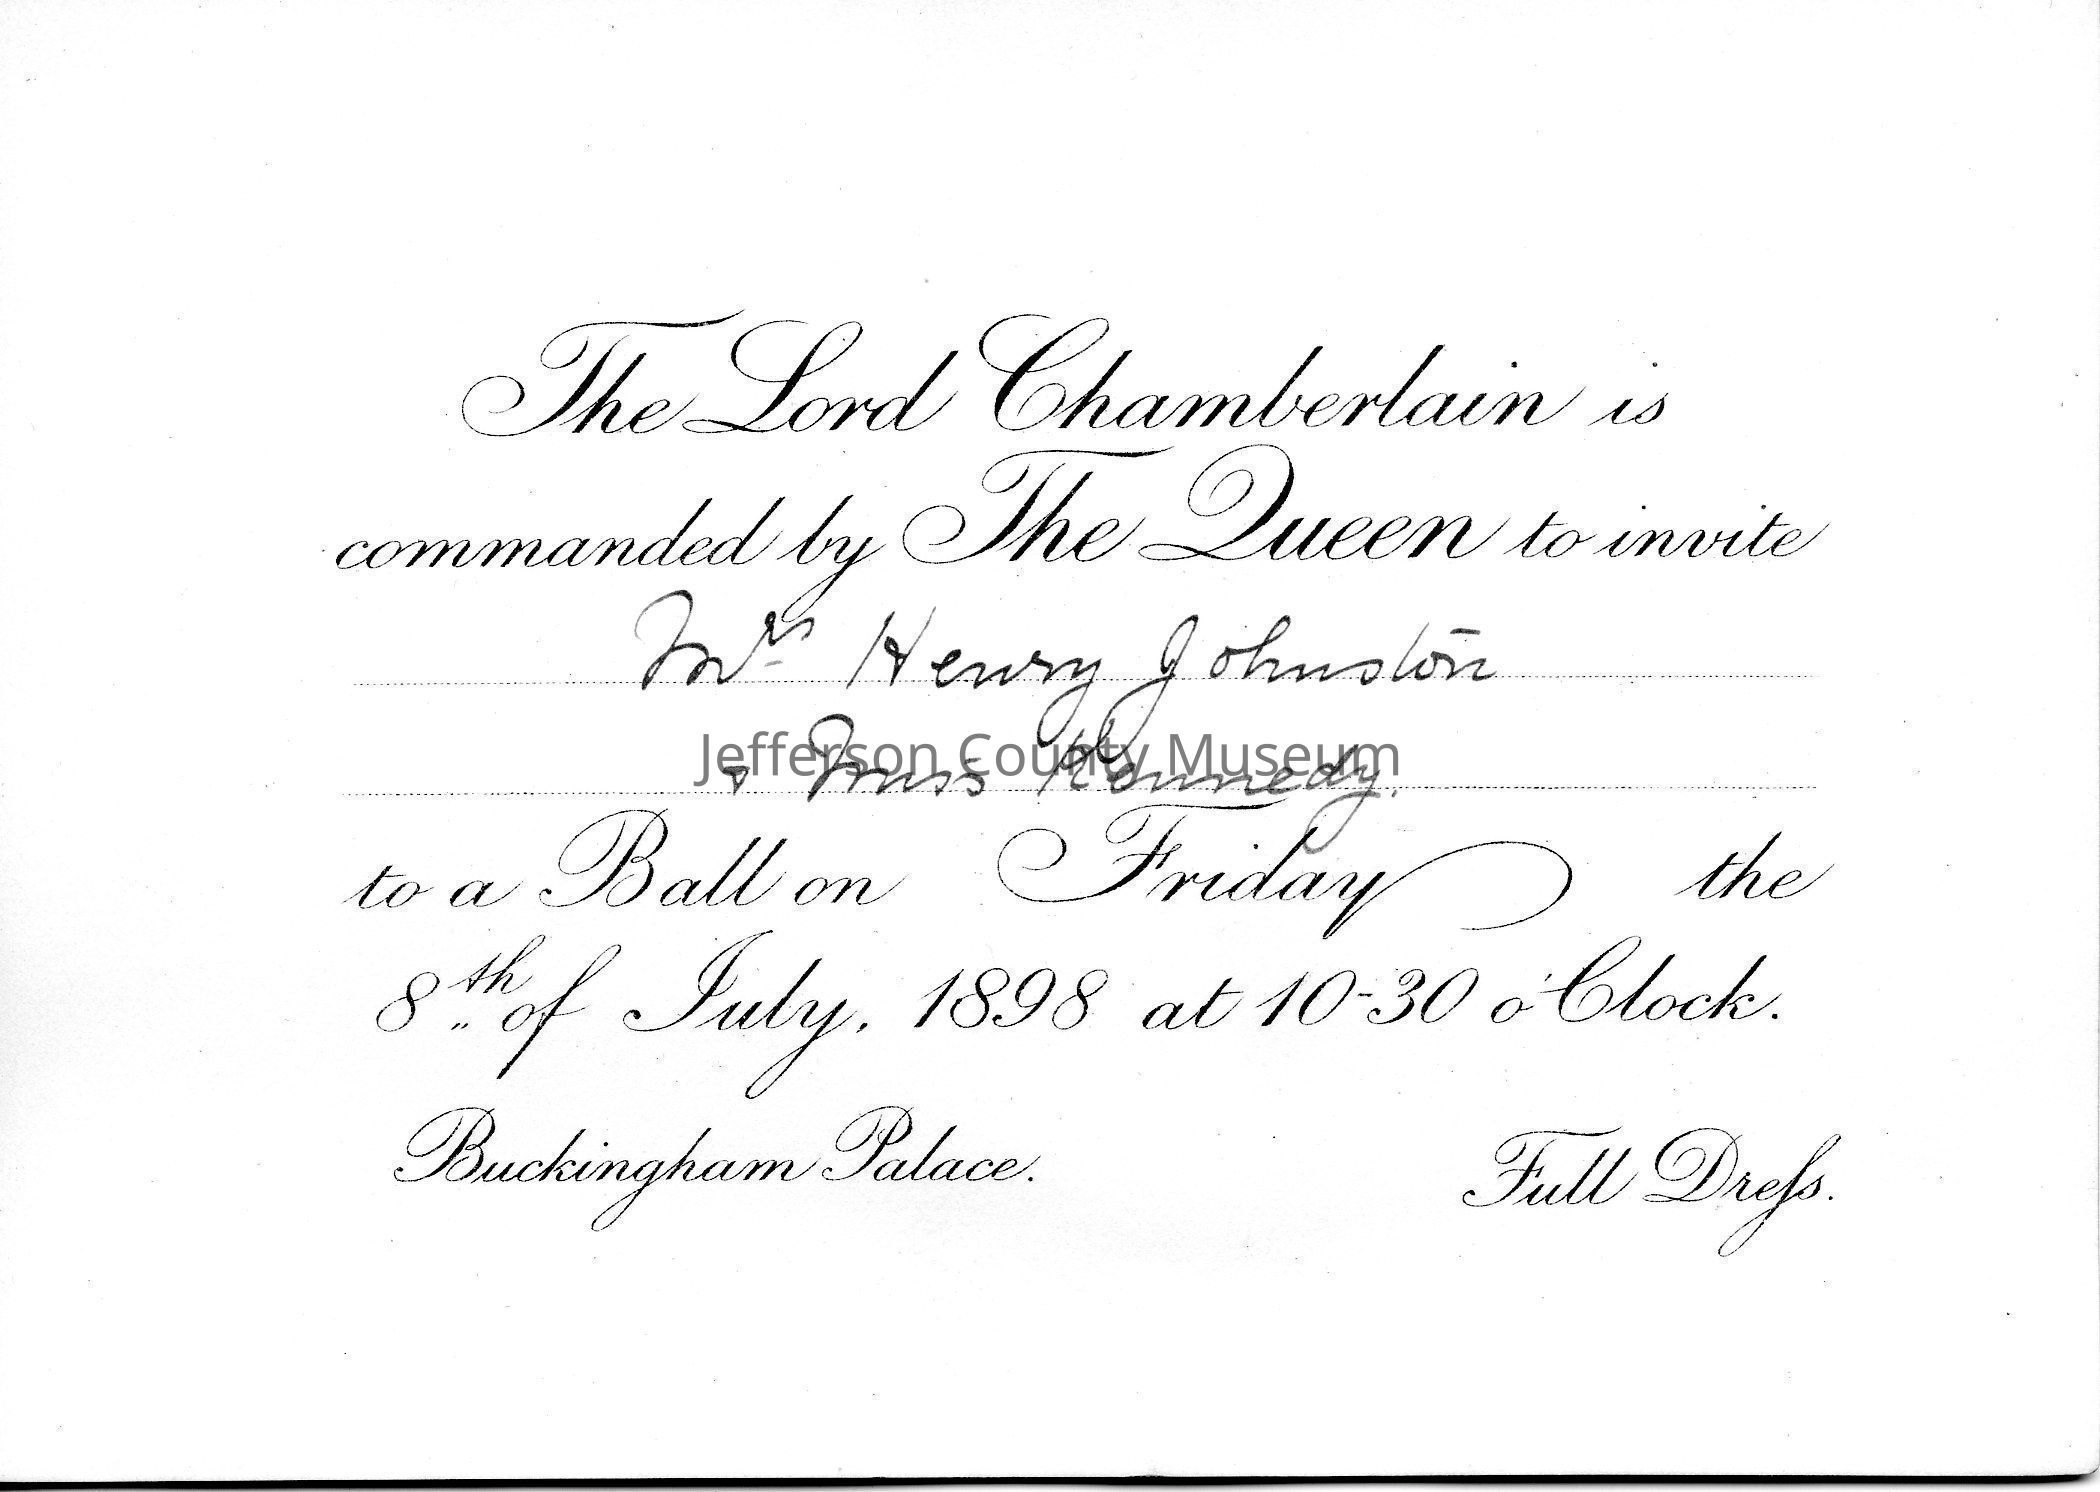 The Lord Chamberlain is
commanded by The Queen to invite
Mrs Henry Johnston
Jefferson County Museum
& Miss Kennedy.
to a Ball on Friday the
8th of July, 1898 at 10-30 o'Clock.
Buckingham Palace.
Full Dreſs.